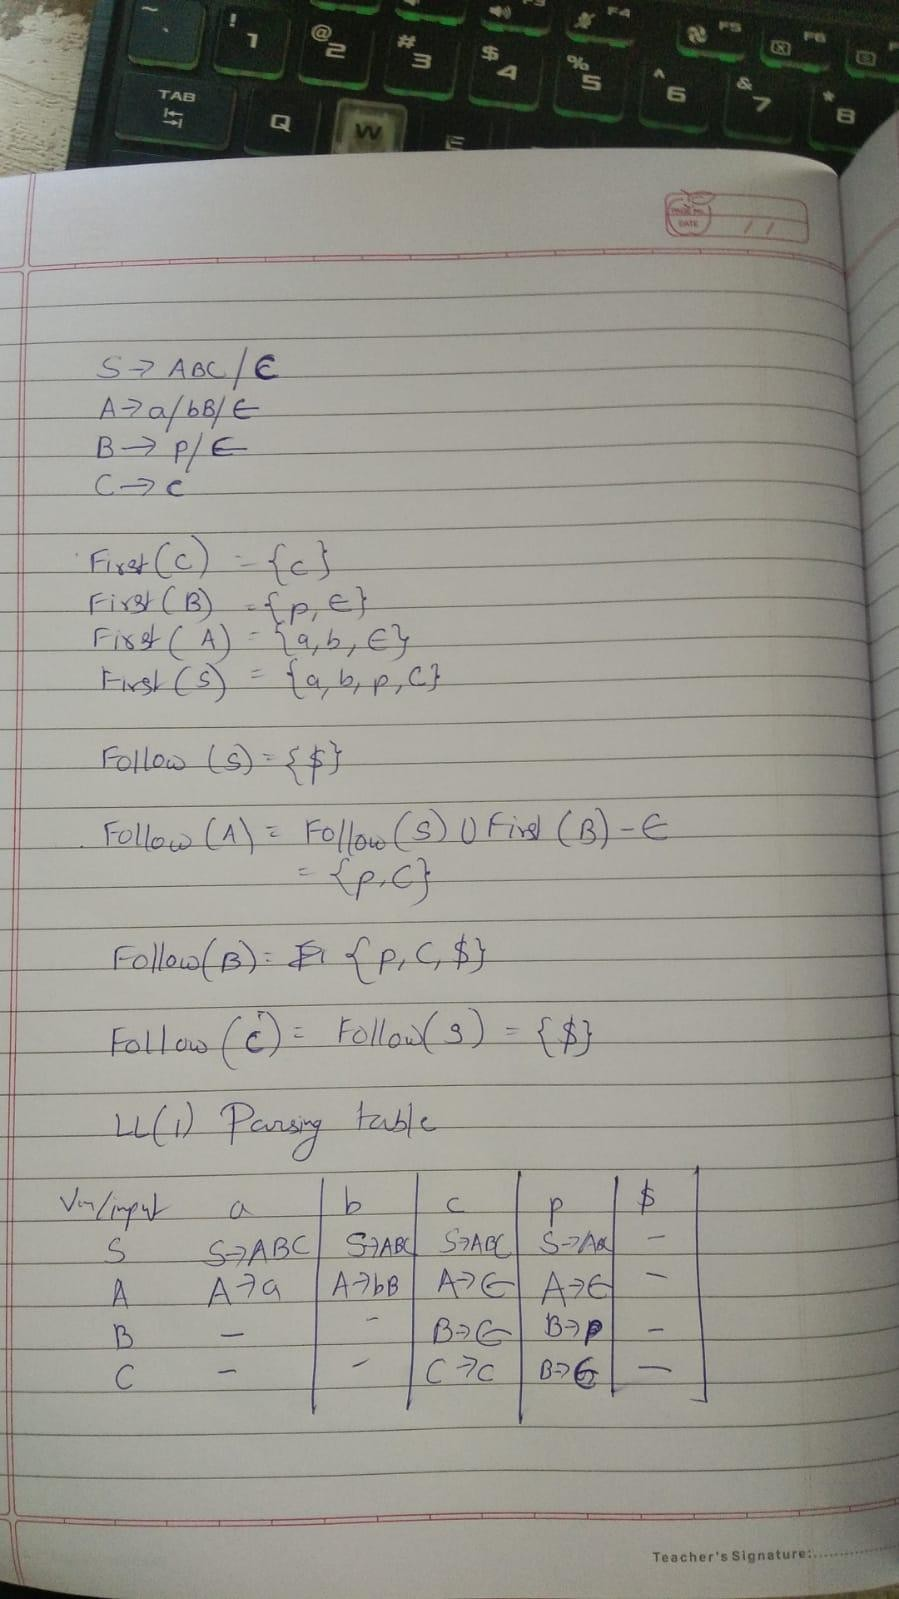 ~
` ! 1 @ 2 # 3 $ 4 % 5 ^ 6 & 7 * 8
F4 F5 F6
TAB Q W E
PAGE No.
DATE / /
S → ABC / ∈
A → a / bB / ∈
B → p / ∈
C → c
First (C) = {c}
First (B) = {p, ∈}
First (A) = {a, b, ∈}
First (S) = {a, b, p, C}
Follow (S) = {$}
Follow (A) = Follow (S) ∪ First (B) - ∈
= {p, C}
Follow (B) = {p, C, $}
Follow (C) = Follow (S) = {$}
LL(1) Parsing table
Vn/input a b c p $
S S→ABC S→ABC S→ABC S→ABC -
A A→a A→bB A→∈ A→∈ -
B - - B→∈ B→p -
C - - C→c B→∈ -
Teacher's Signature: